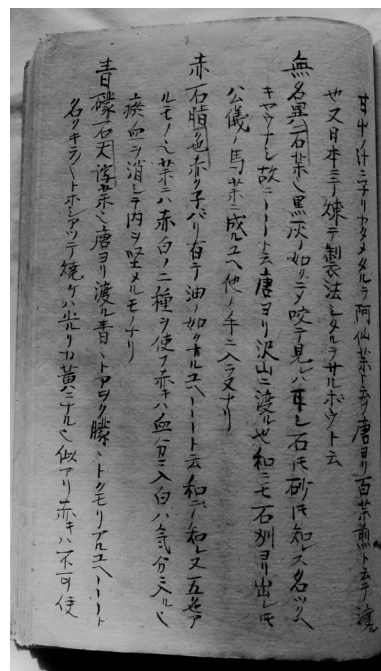 甘中ノ汁ニテリカタメタルヲ阿仙薬ト云フ唐ヨリ百薬煎ト云テ渡ル
也又日本ニテ煉テ製法シタルヲサルボウト云
無名異 石薬也黒灰ノ如クニメ咬テ見レハ耳シ石トモ砂トモ知レス名ツクヘ
キヤウナシ故ニ――ト云唐ヨリ沢山ニ渡ル也和ニモ石州ヨリ出レトモ
公儀ノ馬薬ニ成ルユヘ他ノ手ニ入ラヌナリ
赤石脂 色赤ク子バリ有テ油ノ如クナルユヘ――ト云和ニテ知レ又五色ア
ルモノ也薬ニハ赤白ノ二種ヲ使フ赤キハ血分ニ入白ハ気分ニ入ル也
瘀血ヲ消シテ内ヲ堅メルモノナリ
青礞石 大停薬也唐ヨリ渡ル青ートアヲク朦ートクモリアルユヘ――ト
名ツキラートホシアツテ焼ケハ光リカ黄ニナル也似アリ赤キハ不可使